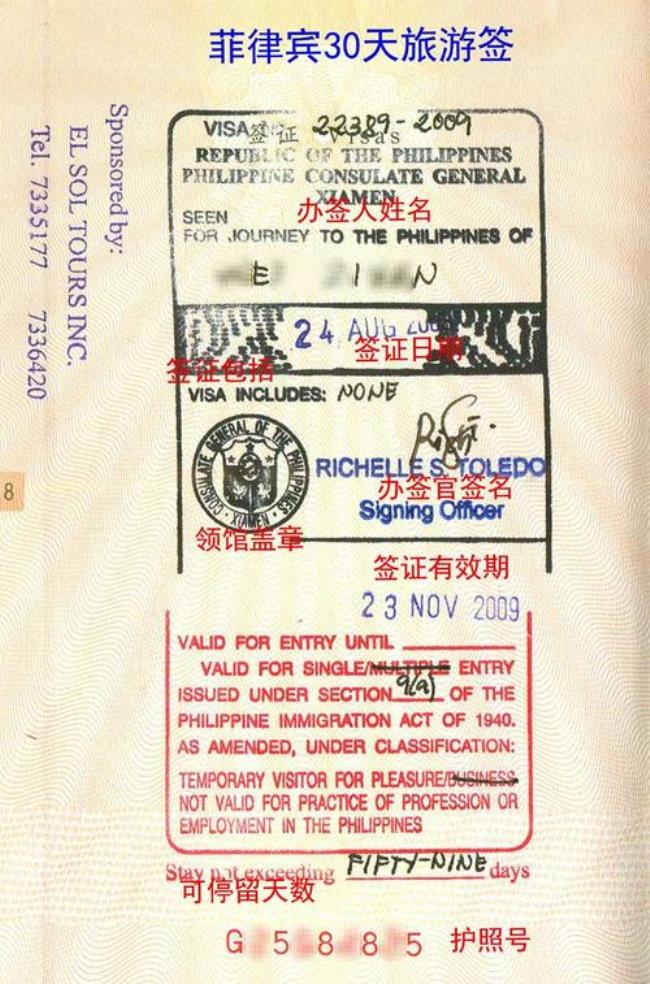 菲律宾30天旅游签
Sponsored by:
EL SOL TOURS INC.
Tel. 7335177 7336420
VISA 22389-2009
签证 Visas
REPUBLIC OF THE PHILIPPINES
PHILIPPINE CONSULATE GENERAL
XIAMEN
办签人姓名
SEEN
FOR JOURNEY TO THE PHILIPPINES OF
24 AUG
签证日期
签证包括
VISA INCLUDES: NONE
CONSULATE GENERAL OF THE PHILIPPINES
XIAMEN
RICHELLE S. TOLEDO
办签官签名
Signing Officer
领馆盖章
签证有效期
23 NOV 2009
VALID FOR ENTRY UNTIL
VALID FOR SINGLE/MULTIPLE ENTRY
ISSUED UNDER SECTION 9(a) OF THE
PHILIPPINE IMMIGRATION ACT OF 1940.
AS AMENDED, UNDER CLASSIFICATION:
TEMPORARY VISITOR FOR PLEASURE/BUSINESS
NOT VALID FOR PRACTICE OF PROFESSION OR
EMPLOYMENT IN THE PHILIPPINES
Stay not exceeding FIFTY-NINE days
可停留天数
护照号
8